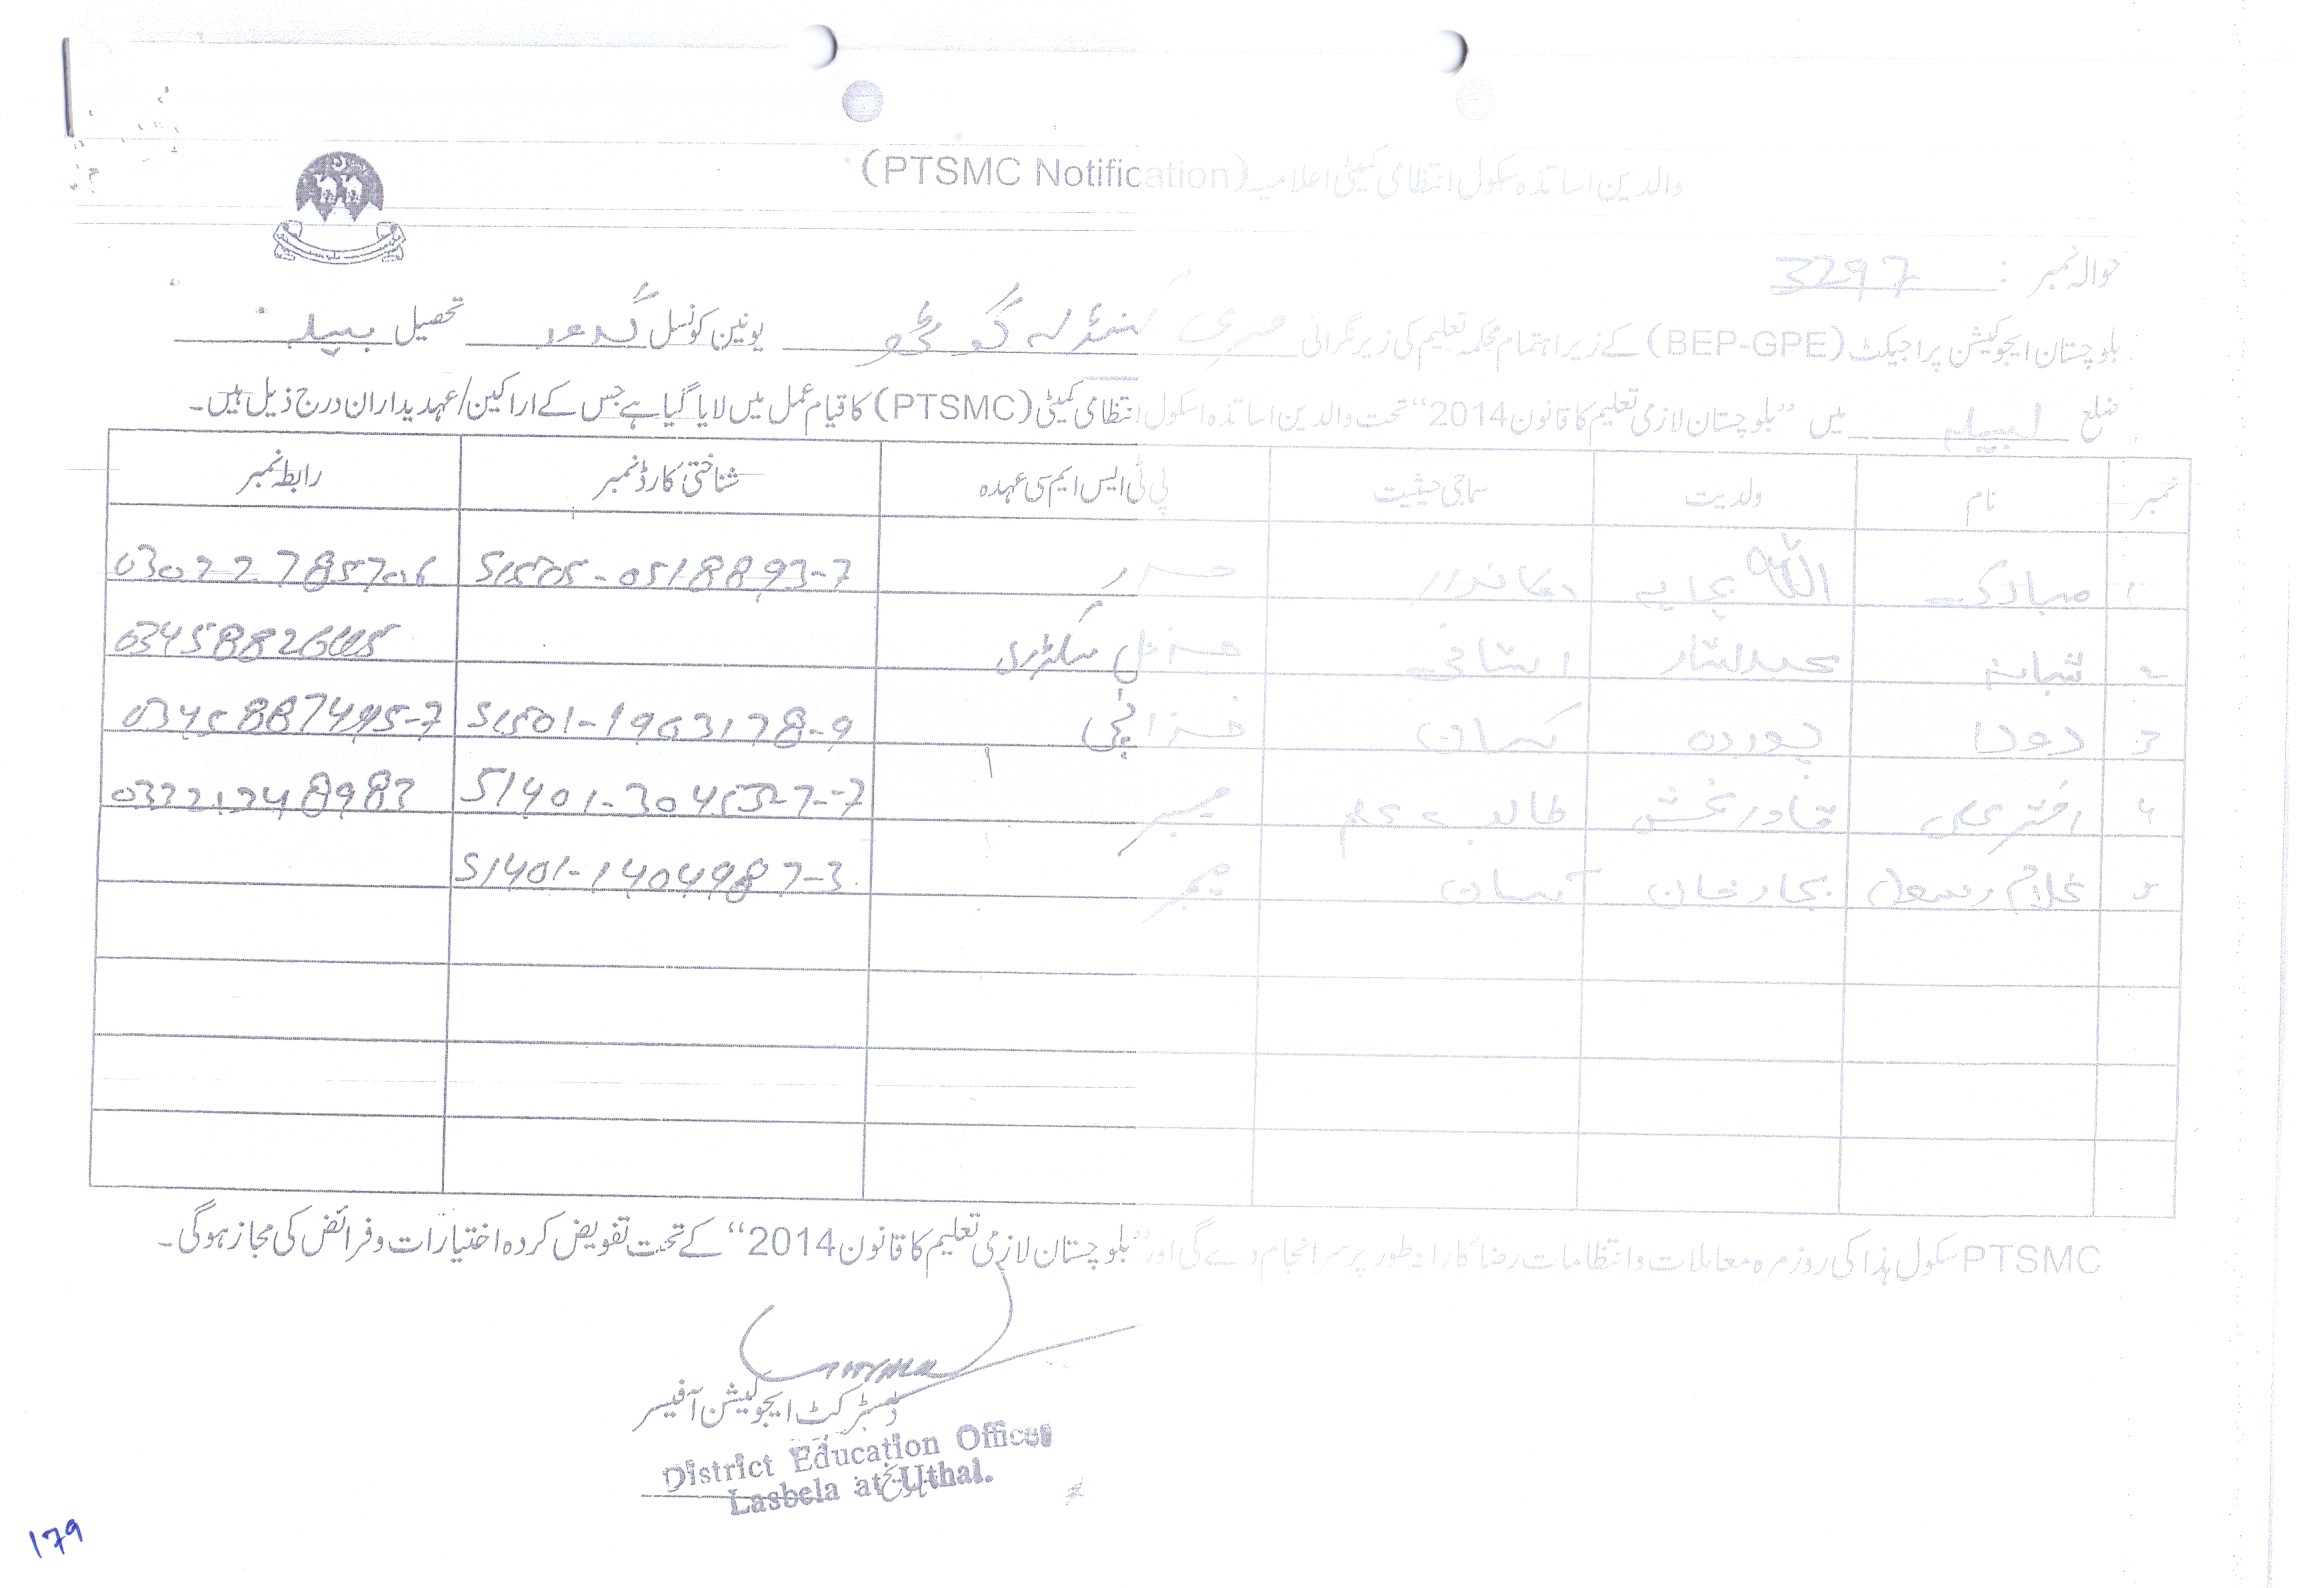 والدین اساتذہ سکول انتظامی کمیٹی اعلامیہ (PTSMC Notification)
حوالہ نمبر : 3297
بلوچستان ایجوکیشن پراجیکٹ (BEP-GPE) کے زیر اہتمام محکمہ تعلیم کی زیر نگرانی گوٹھ یونین کونسل تحصیل بیلہ
ضلع لسبیلہ میں ”بلوچستان لازمی تعلیم کا قانون 2014“ تحت والدین اساتذہ اسکول انتظامی کمیٹی (PTSMC) کا قیام عمل میں لایا گیا ہے جس کے اراکین/عہدیداران درج ذیل ہیں۔
نمبر نام ولدیت سماجی حیثیت پی ٹی ایس ایم سی عہدہ شناختی کارڈ نمبر رابطہ نمبر
1 مبارک اللہ بچایہ دکاندار 03022785706
2 شبانہ عبدالستار استانی جنرل سکٹری
3 دودا کسان خزانچی 51501-1963178-9
4 اختر علی قادر بخش طالب علم ممبر
5 غلام رسول بجار خان کسان ممبر 51401-1404987-3
PTSMC سکول ہذا کی روزمرہ معاملات و انتظامات رضاکارانہ طور پر سرانجام دے گی اور ”بلوچستان لازمی تعلیم کا قانون 2014“ کے تحت تفویض کردہ اختیارات و فرائض کی مجاز ہوگی۔
ڈسٹرکٹ ایجوکیشن آفیسر
District Education Officer
Lasbela at Uthal.
179